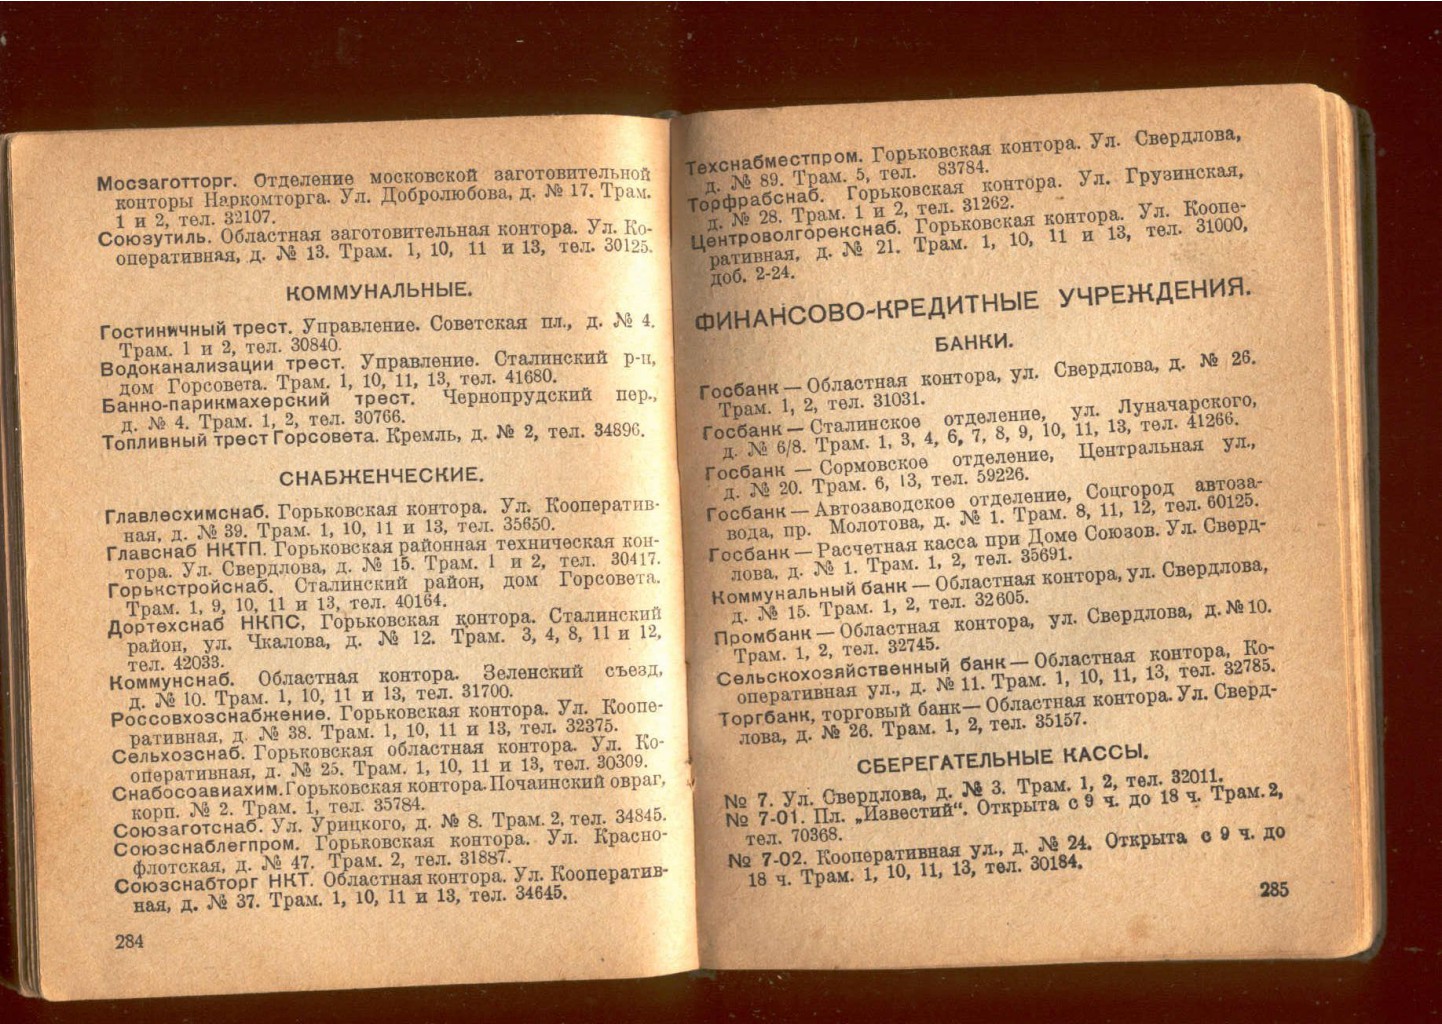 Мосзаготторг. Отделение московской заготовительной
конторы Наркомторга. Ул. Добролюбова, д. № 17. Трам.
1 и 2, тел. 32107.
Союзутиль. Областная заготовительная контора. Ул. Ко-
оперативная, д. № 13. Трам. 1, 10, 11 и 13, тел. 30125.
КОММУНАЛЬНЫЕ.
Гостиничный трест. Управление. Советская пл., д. № 4.
Трам. 1 и 2, тел. 30840.
Водоканализации трест. Управление. Сталинский р-н,
дом Горсовета. Трам. 1, 10, 11, 13, тел. 41680.
Банно-парикмахерский трест. Чернопрудский пер.,
д. № 4. Трам. 1, 2, тел. 30766.
Топливный трест Горсовета. Кремль, д. № 2, тел. 34896.
СНАБЖЕНЧЕСКИЕ.
Главлесхимснаб. Горьковская контора. Ул. Кооператив-
ная, д. № 39. Трам. 1, 10, 11 и 13, тел. 35650.
Главснаб НКТП. Горьковская районная техническая кон-
тора. Ул. Свердлова, д. № 15. Трам. 1 и 2, тел. 30417.
Горькстройснаб. Сталинский район, дом Горсовета.
Трам. 1, 9, 10, 11 и 13, тел. 40164.
Дортехснаб НКПС, Горьковская контора. Сталинский
район, ул. Чкалова, д. № 12. Трам. 3, 4, 8, 11 и 12,
тел. 42033.
Коммунснаб. Областная контора. Зеленский съезд,
д. № 10. Трам. 1, 10, 11 и 13, тел. 31700.
Россовхозснабжение. Горьковская контора. Ул. Коопе-
ративная, д. № 38. Трам. 1, 10, 11 и 13, тел. 32375.
Сельхозснаб. Горьковская областная контора. Ул. Ко-
оперативная, д. № 25. Трам. 1, 10, 11 и 13, тел. 30309.
Снабосоавиахим. Горьковская контора. Почаинский овраг,
корп. № 2. Трам. 1, тел. 35784.
Союззаготснаб. Ул. Урицкого, д. № 8. Трам. 2, тел. 34845.
Союзснаблегпром. Горьковская контора. Ул. Красно-
флотская, д. № 47. Трам. 2, тел. 31887.
Союзснабторг НКТ. Областная контора. Ул. Кооператив-
ная, д. № 37. Трам. 1, 10, 11 и 13, тел. 34645.
284
Техснабместпром. Горьковская контора. Ул. Свердлова,
д. № 89. Трам. 5, тел. 83784.
Торфрабснаб. Горьковская контора. Ул. Грузинская,
д. № 28. Трам. 1 и 2, тел. 31262.
Центроволгорекснаб. Горьковская контора. Ул. Коопе-
ративная, д. № 21. Трам. 1, 10, 11 и 13, тел. 31000,
доб. 2-24.
ФИНАНСОВО-КРЕДИТНЫЕ УЧРЕЖДЕНИЯ.
БАНКИ.
Госбанк — Областная контора, ул. Свердлова, д. № 26.
Трам. 1, 2, тел. 31031.
Госбанк — Сталинское отделение, ул. Луначарского,
д. № 6/8. Трам. 1, 3, 4, 6, 7, 8, 9, 10, 11, 13, тел. 41266.
Госбанк — Сормовское отделение, Центральная ул.,
д. № 20. Трам. 6, 13, тел. 59226.
Госбанк — Автозаводское отделение, Соцгород автоза-
вода, пр. Молотова, д. № 1. Трам. 8, 11, 12, тел. 60125.
Госбанк — Расчетная касса при Доме Союзов. Ул. Сверд-
лова, д. № 1. Трам. 1, 2, тел. 35691.
Коммунальный банк — Областная контора, ул. Свердлова,
д. № 15. Трам. 1, 2, тел. 32605.
Промбанк — Областная контора, ул. Свердлова, д. № 10.
Трам. 1, 2, тел. 32745.
Сельскохозяйственный банк — Областная контора, Ко-
оперативная ул., д. № 11. Трам. 1, 10, 11, 13, тел. 32785.
Торгбанк, торговый банк — Областная контора. Ул. Сверд-
лова, д. № 26. Трам. 1, 2, тел. 35157.
СБЕРЕГАТЕЛЬНЫЕ КАССЫ.
№ 7. Ул. Свердлова, д. № 3. Трам. 1, 2, тел. 32011.
№ 7-01. Пл. „Известий“. Открыта с 9 ч. до 18 ч. Трам. 2,
тел. 70368.
№ 7-02. Кооперативная ул., д. № 24. Открыта с 9 ч. до
18 ч. Трам. 1, 10, 11, 13, тел. 30184.
285